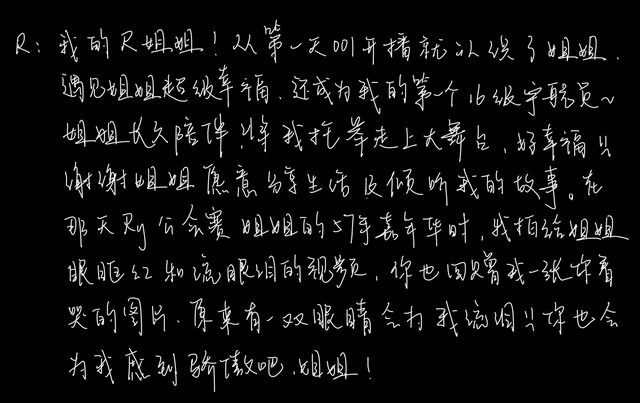 R：我的R姐姐！从第一天001开播就认识了姐姐.
遇见姐姐超级幸福.还成为我的第一个16级宇航员~
姐姐长久陪伴!将我托举走上大舞台,好幸福!!
谢谢姐姐愿意分享生活及倾听我的故事。在
那天Ry公会赛 姐姐的57年嘉年华时,我拍给姐姐
眼眶红和流眼泪的视频,你也回赠我一张你看
哭的图片.原来有一双眼睛会为我流泪!!你也会
为我感到骄傲吧.姐姐!